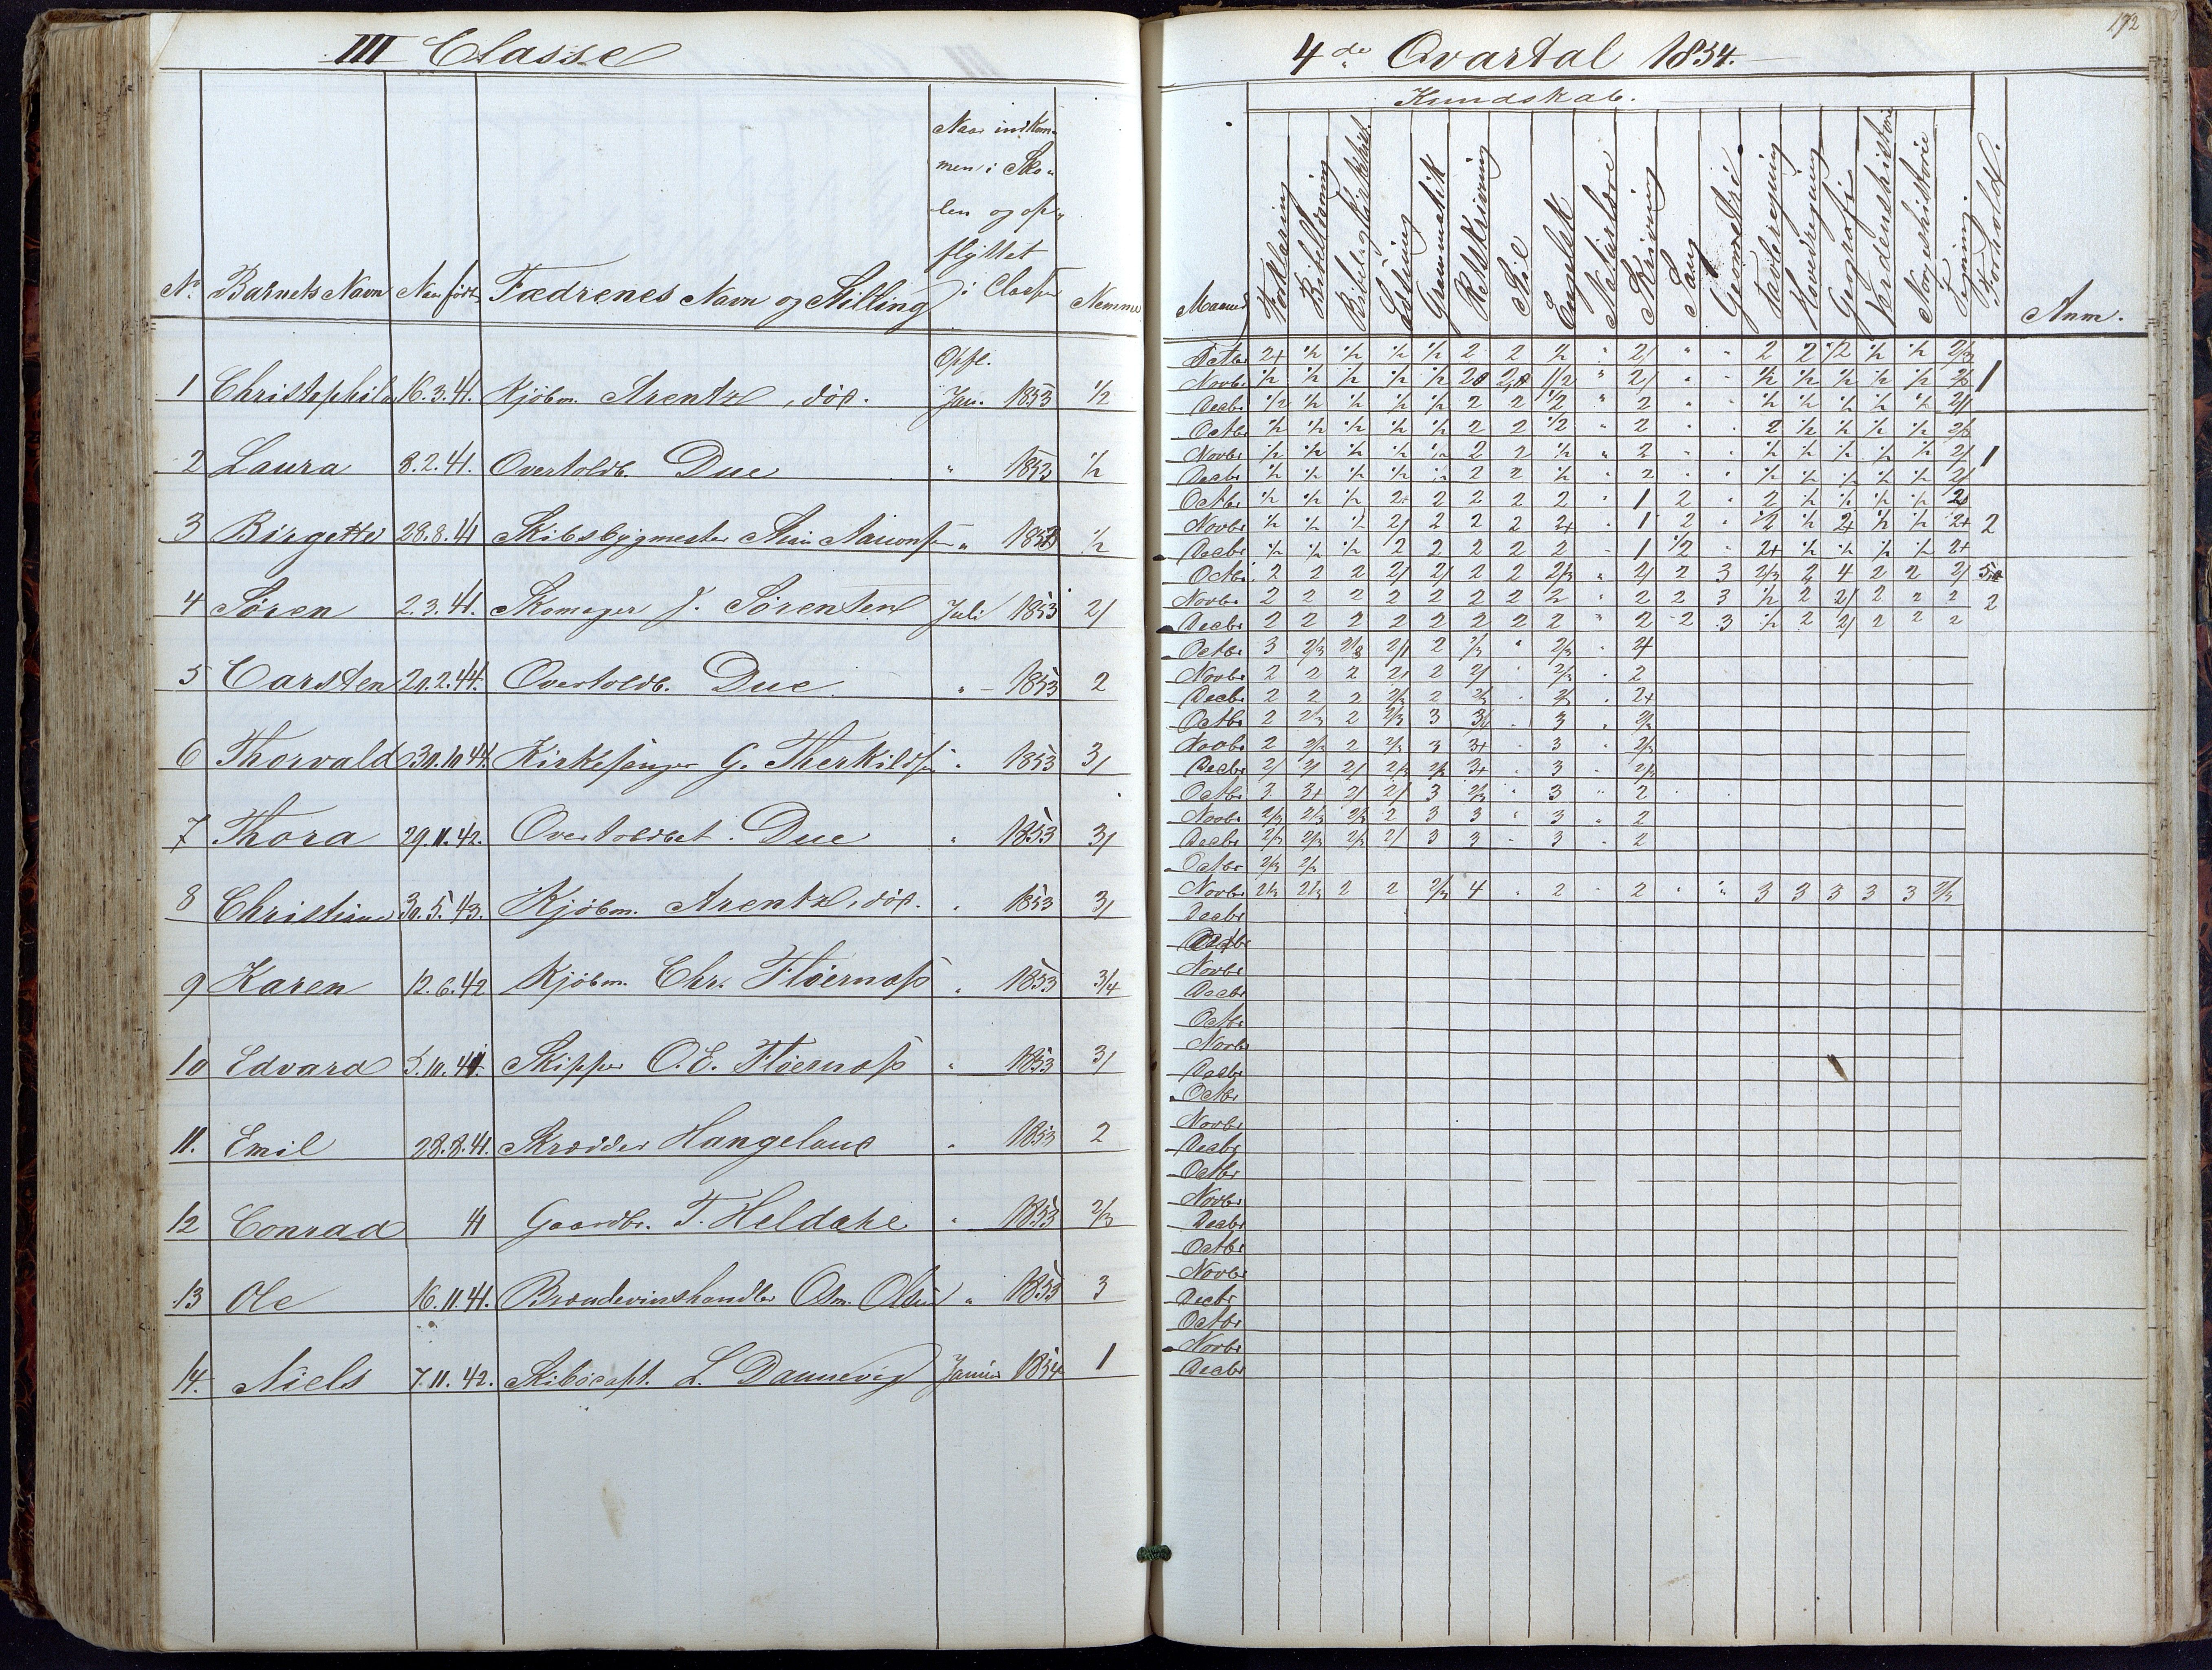 III Classe
Naar indkom-
men i Sko-
len og op-
flyttet
i Classen
No Barnets Navn Naar født Fædrenes Navn og Stilling Nemme
Opfl.
1 16.3.41. Kjøbm. Arentz, død. Jan. 1853 1/2
2 Laura 8.2.41. Overtoldb. Due " 1853 1/2
3 Birgette 28.8.41 Skibsbygmester " 1/2
4 Søren 2.3.41. Skomager J. Sørensen Juli 1853 2/
5 Carsten 20.2.44. Overtoldb. Due " 1853 2
6 Thorvald 30.10.44. Kirkesanger G. Therkildsen " 1853 3/
7 Thora 29.11.42. Overtoldbet. Due " 1853 3/
8 Christine 30.5.43. Kjøbm. Arentz, død. " 1853 3/
9 Karen 12.6.42 Kjøbm. Chr. Fløernæss " 1853 3/4
10 Edvard 5.10.41. Skipper O.E. Fløernæss " 1853 3/
11. Emil 28.8.41. Skrædder Hangeland " 1853 2
12 Conrad 41 Gaardbr. T. Heldahl " 1853 2/3
13 Ole 16.11.41. Brændevinshandler Osm. Olsen " 1853 3
14. Niels 7.11.42. Skibscapt. L. Dannevig Januar 1854 1
172
4de Qvartal 1854.
Kundskab.
Maaned Forklaring Bibellæsning Læsning Grammatik Retskrivning Stil Engelsk Naturlære Skrivning Sang Geometri Tavleregning Hovedregning Geografi Verdenshistorie Norgeshistorie Tegning. Forhold. Anm.
Octbr 2+ 1/2 1/2 1/2 1/2 2 2 1/2 " 2/ " " 2 2 1/2 1/2 1/2 2/3
Novbr 1/2 1/2 1/2 1/2 1/2 1/2 " 2/ " " 1/2 1/2 1/2 1/2 1/2 2/3 1
Decbr 1/2 1/2 1/2 1/2 1/2 2 2 1/2 " 2 " " 1/2 1/2 1/2 1/2 1/2 2/
Octbr 1/2 1/2 1/2 1/2 1/2 2 2 1/2 " 2 " " 2 1/2 1/2 1/2 1/2 2/3
Novbr 1/2 1/2 1/2 1/2 1/2 2 2 1/2 " 2 " " 1/2 1/2 1/2 1/2 1/2 2/ 1
Decbr 1/2 1/2 1/2 1/2 1/2 2 2 1/2 " 2 " " 1/2 1/2 1/2 1/2 1/2 2/
Octbr 1/2 1/2 1/2 2+ 2 2 2 2 " 1 2 " 2 1/2 1/2 1/2 1/2
Novbr 1/2 1/2 1/2 2/ 2 2 2 2+ " 1 2 " 1/2 1/2 2+ 1/2 1/2 2+ 2
Decbr 1/2 1/2 1/2 2 2 2 2 2 " 1 1/2 " 2+ 1/2 1/2 1/2 1/2 2+
Octbr 2 2 2 2/ 2/ 2 2 2/3 " 2/ 2 3 2/3 2 4 2 2 2/
Novbr 2 2 2 2 2 2 2 2 " 2 2 3 1/2 2 2/ 2 2 2 2
Decbr 2 2 2 2 2 2 2 2 " 2 2 3 1/2 2 2/ 2 2 2
Octbr 3 2/3 2/3 2/ 2 2/3 " 2/3 " 4
Novbr 2 2 2 2+ 2 2/ " 2/3 " 2
Decbr 2 2 2 2/3 2 2/3 " 2/3 " 2+
Octbr 2 2/3 2 2/3 3 3/ " 3 " 2/3
Novbr 2 2/3 2 2/3 3 3+ " 3 " 2/3
Decbr 2/ 2/ 2/ 2/3 2/3 3+ " 3 " 2/3
Octbr 3 3+ 2/ 2/ 3 2/3 " 3 " 2
Novbr 2/3 2/3 2/3 2 3 3 " 3 " 2
Decbr 2/3 2/3 2/3 2/ 3 3 " 3 " 2
Octbr 2/3 2/3
Novbr 2/3 2/3 2 2 2/3 4 " 2 " 2 " " 3 3 3 3 3 2/3
Decbr
Octbr
Novbr
Decbr
Octbr
Novbr
Decbr
Octbr
Novbr
Decbr
Octbr
Novbr
Decbr
Octbr
Novbr
Decbr
Octbr
Novbr
Decbr